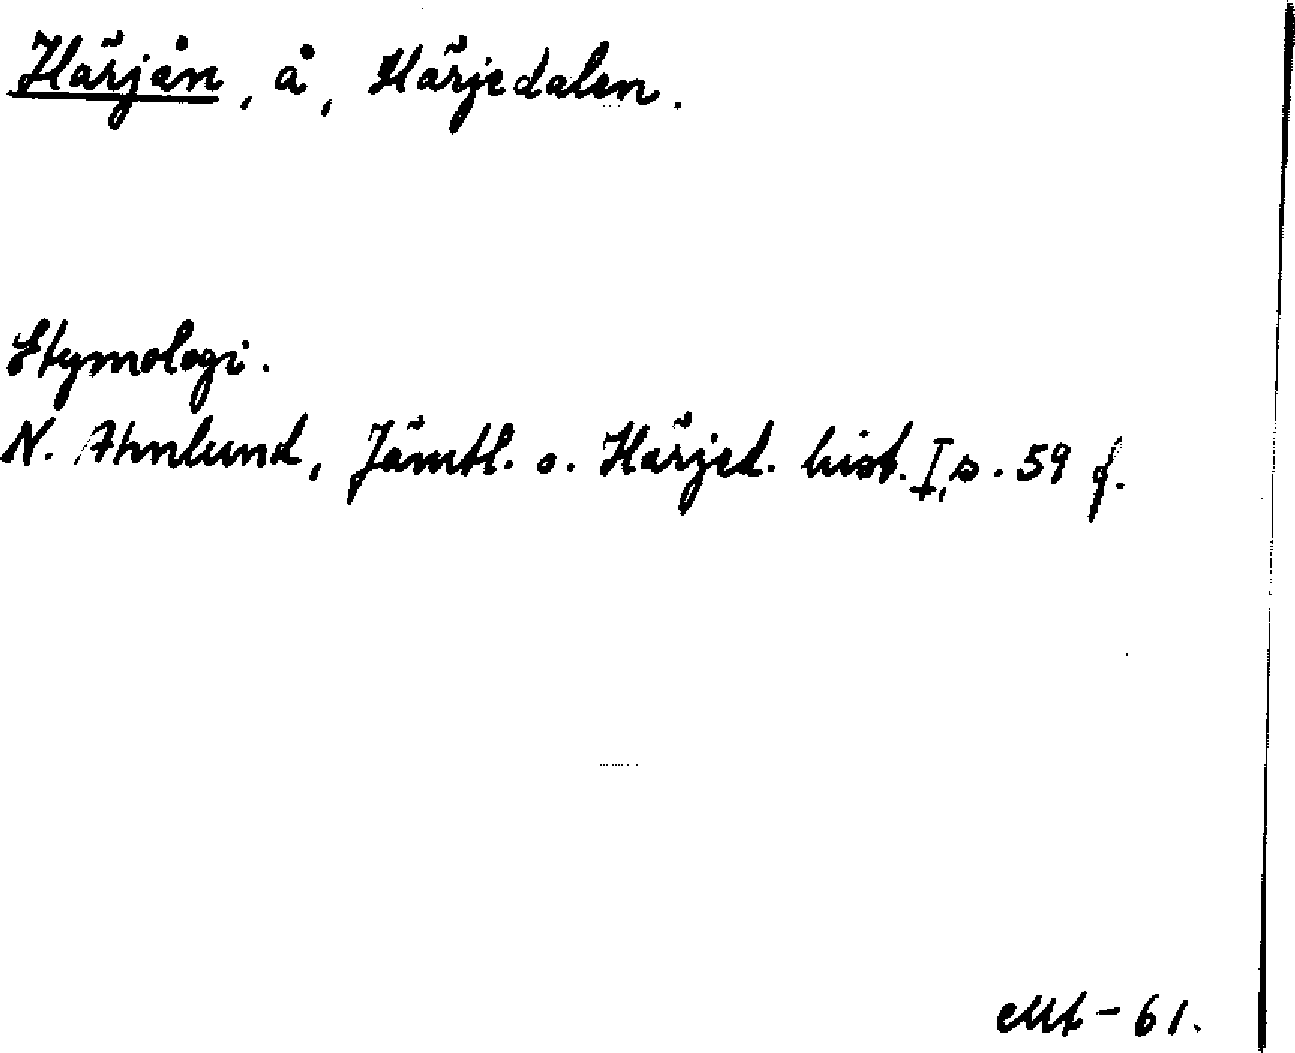 Härjån, å, Härjedalen.
Etymologi.
N. Ahnlund, Jämtl. o. Härjed. hist. I, s. 59 f.
-61.